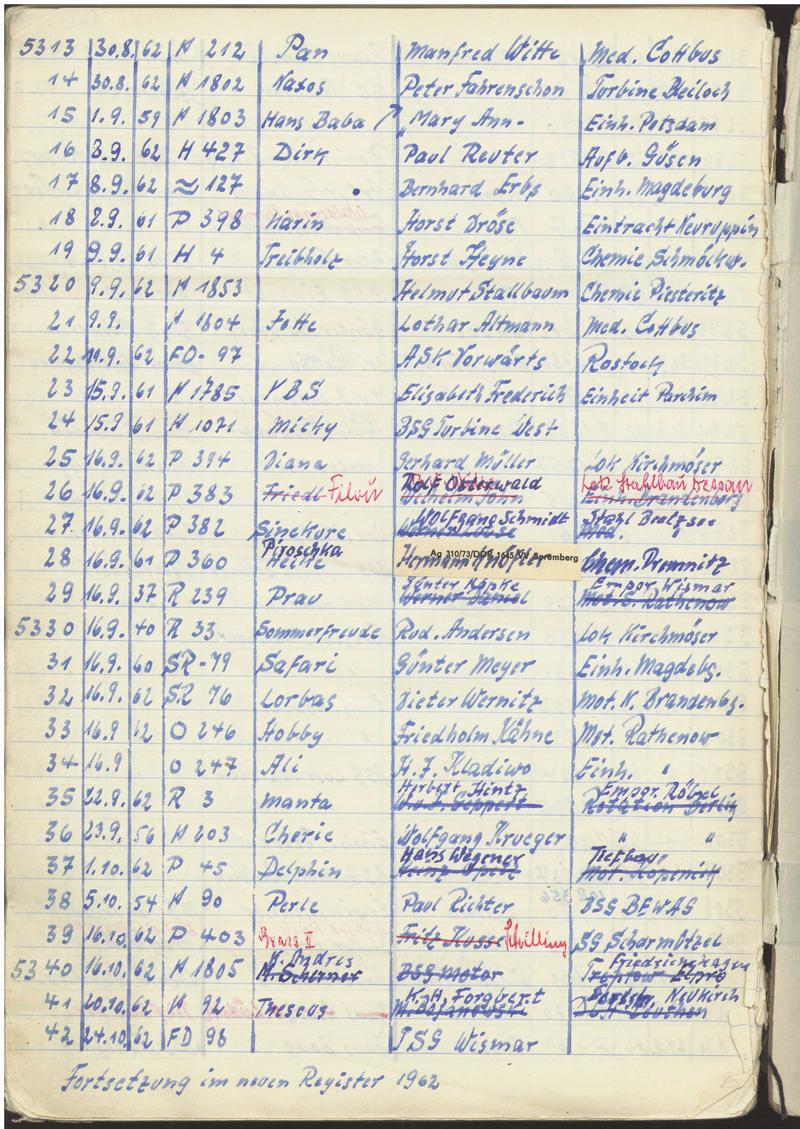 5313 30.8. 62 H 212 Pan Manfred Witte Med. Cottbus
14 30.8. 62 H 1802 Naxos Peter Fahrenschon Turbine Bleiloch
15 1.9. 59 H 1803 Hans Baba ↗ "Mary Ann- Einh. Potsdam
16 8.9. 62 H 427 Dirk Paul Reuter Aufb. Güsen
17 8.9. 62 ≈ 127 Bernhard Erbs Einh. Magdeburg
18 8.9. 61 P 398 Karin Horst Dröse Eintracht Neuruppin
19 9.9. 61 H 4 Treibholz Horst Heyne Chemie Schmöckw.
5320 9.9. 62 H 1853 Helmut Stallbaum Chemie Piesteritz
21 9.9. H 1804 Lothar Altmann Med. Cottbus
22 62 FD- 97 ASK Vorwärts Rostock
23 15.9. 61 H 1785 YBS Elisabeth Frederich Einheit Parchim
24 15.9 61 H 1071 Micky BSG Turbine West
25 16.9. 62 P 394 Diana Gerhard Müller Lok Kirchmöser
26 16.9. 62 P 383 Friedl Filou Rolf Osterwald Wilhelm John Lok Stahlbau Dessau Einh. Brandenburg
27. 16.9. 62 P 382 Sinekure Wolfgang Schmidt Stahl Beetzsee
28 16.9. 61 P 360 Piroschka Hermann Ag 310/73/DDR 1645/VV Spremberg Chem. Premnitz
29 16.9. 37 R 239 Prau Günter Köpke Werner Daniel Empor Wismar Mot. S. Rathenow
5330 16.9. 40 R 33 Sommerfreude Rud. Andersen Lok Kirchmöser
31 16.9. 60 SR-79 Safari Günter Meyer Einh. Magdebg.
32 16.9. 62 SR 76 Lorbas Dieter Wernitz Mot. N. Brandenbg.
33 16.9 62 O 246 Hobby Friedholm Kähne Mot. Rathenow
34 16.9 O 247 Ali H. J. Kladiwo Einh. "
35 22.9. 62 R 3 Manta Herbert Hintz Empor. Röbel Rotation Berlin
36 23.9. 56 H 203 Cherie Wolfgang Krueger " "
37 1.10. 62 P 45 Delphin Hans Wegener Tiefbau Mot. Köpenick
38 5.10. 54 H 90 Perle Paul Richter BSG BEWAG
39 16.10. 62 P 403 Fritz Kusse Schilling SG Scharmützel
5340 16.10. 62 H 1805 H. Andres M. Scherner BSG Motor Friedrichshagen Treptow Elpro
41 20.10. 62 H 92 Theseus K. H. Forgbert Neukirch
42 24.10. 62 FD 98 TSG Wismar
Fortsetzung im neuen Register 1962